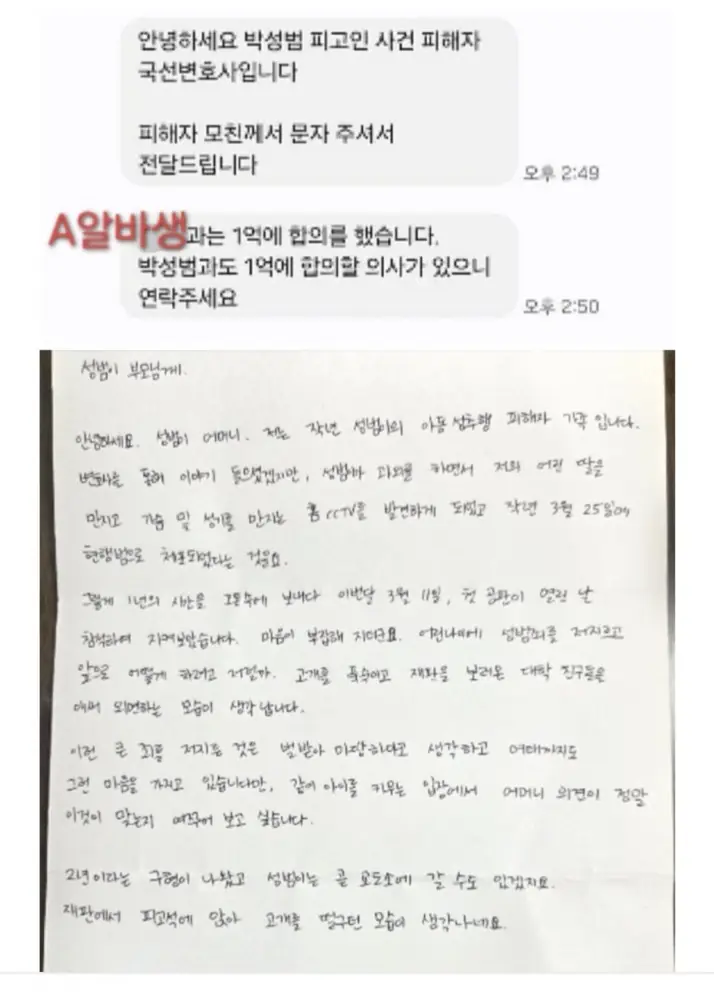 안녕하세요 박성범 피고인 사건 피해자
국선변호사입니다
피해자 모친께서 문자 주셔서
전달드립니다
오후 2:49
A알바생과는 1억에 합의를 했습니다.
박성범과도 1억에 합의할 의사가 있으니
연락주세요
오후 2:50
성범이 부모님께.
안녕하세요. 성범이 어머니. 저는 작년 성범이의 아동 성추행 피해자 가족입니다.
변호사를 통해 이야기 들으셨겠지만, 성범이가 과외를 하면서 저의 어린 딸을
만지고 가슴 및 성기를 만지는 홈 CCTV를 발견하게 되었고 작년 3월 25일에
현행범으로 체포되었다는 것을요.
그렇게 1년의 시간을 고통속에 보내다 이번달 3월 11일, 첫 공판이 열린 날
참석하여 지켜보았습니다. 마음이 복잡해 지더군요. 어린나이에 성범죄를 저지르고
앞으로 어떻게 하려고 저럴까. 고개를 푹숙이고 재판을 보러온 대학 친구들을
애써 외면하는 모습이 생각 납니다.
이런 큰 죄를 저지른 것은 벌받아 마땅하다고 생각하고 여태까지도
그런 마음을 가지고 있습니다만, 같이 아이를 키우는 입장에서 어머니 의견이 정말
이것이 맞는지 여쭈어 보고 싶습니다.
2년이라는 구형이 나왔고 성범이는 곧 교도소에 갈 수도 있겠지요.
재판에서 피고석에 앉아 고개를 떨구던 모습이 생각나네요.